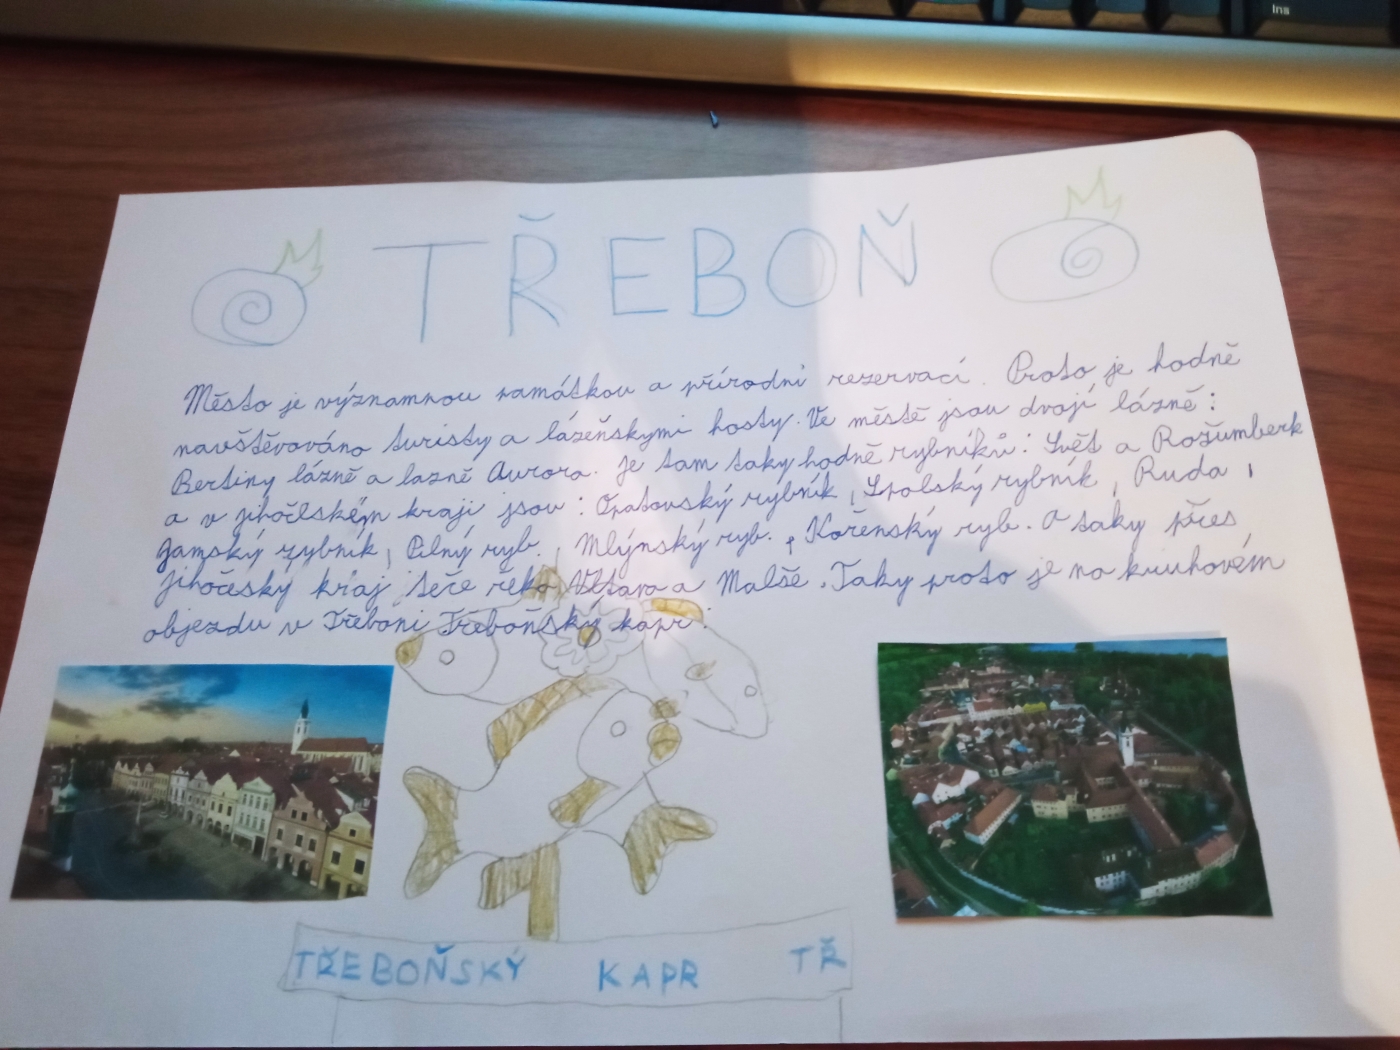 Ins
TŘEBOŇ
Město je významnou památkou a přírodní rezervací. Proto je hodně
navštěvováno turisty a lázeňskymi hosty. Ve městě jsou dvojí lázně:
Bertiny lázně a lazně Aurora. Je tam taky hodně rybníků: Svět a Rožumberk
a v jihočeském kraji jsou: Opatovský rybník, Spolský rybník, Ruda,
Jamský rybník, Pilný ryb., Mlýnský ryb., Kořenský ryb. A taky přes
Jihočeský kraj teče řeka Vltava a Malše. Taky proto je na kruhovém
objezdu v Třeboni Třeboňský kapr.
TŘEBOŇSKÝ KAPR TŘ